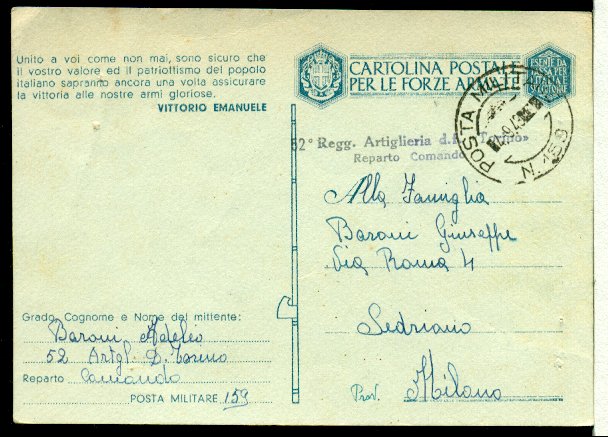 Unito a voi come non mai, sono sicuro che
il vostro valore ed il patriottismo del popolo
italiano sapranno ancora una volta assicurare
la vittoria alle nostre armi gloriose.
VITTORIO EMANUELE
CARTOLINA POSTALE
PER LE FORZE ARMATE
POSTA MILITARE
N. 159
52° Regg. Artiglieria d.f. « Torino»
Reparto Comando
Alla Famiglia
Baroni Giuseppe
Via Roma 4
Sedriano
Prov. Milano
Grado, Cognome e Nome del mittente:
Baroni Adeleo
52 Artgl. D. Torino
Reparto Comando
POSTA MILITARE 159